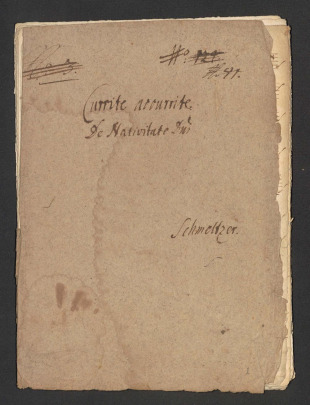 No 3.
No 129.
N. 91.
Currite accurrite
De Nativitate Dni
Schmeltzer.